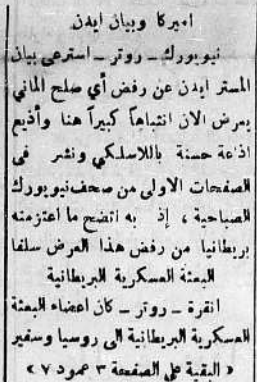 اميركا وبيان ايدن
نيويورك ــ روتر ــ استرعى بيان
المستر ايدن عن رفض أي صلح الماني
يعرض الان انتباهاً كبيراً هنا وأذيع
اذاعة حسنة باللاسلكي ونشر في
الصفحات الاولى من صحف نيويورك
الصباحية ، إذ به اتضح ما اعتزمته
بريطانيا من رفض هذا العرض سلفا
البعثة العسكرية البريطانية
انقرة ــ روتر ــ كان اعضاء البعثة
العسكرية البريطانية الى روسيا وسفير
« البقية على الصفحة ٣ عمود ٧ »